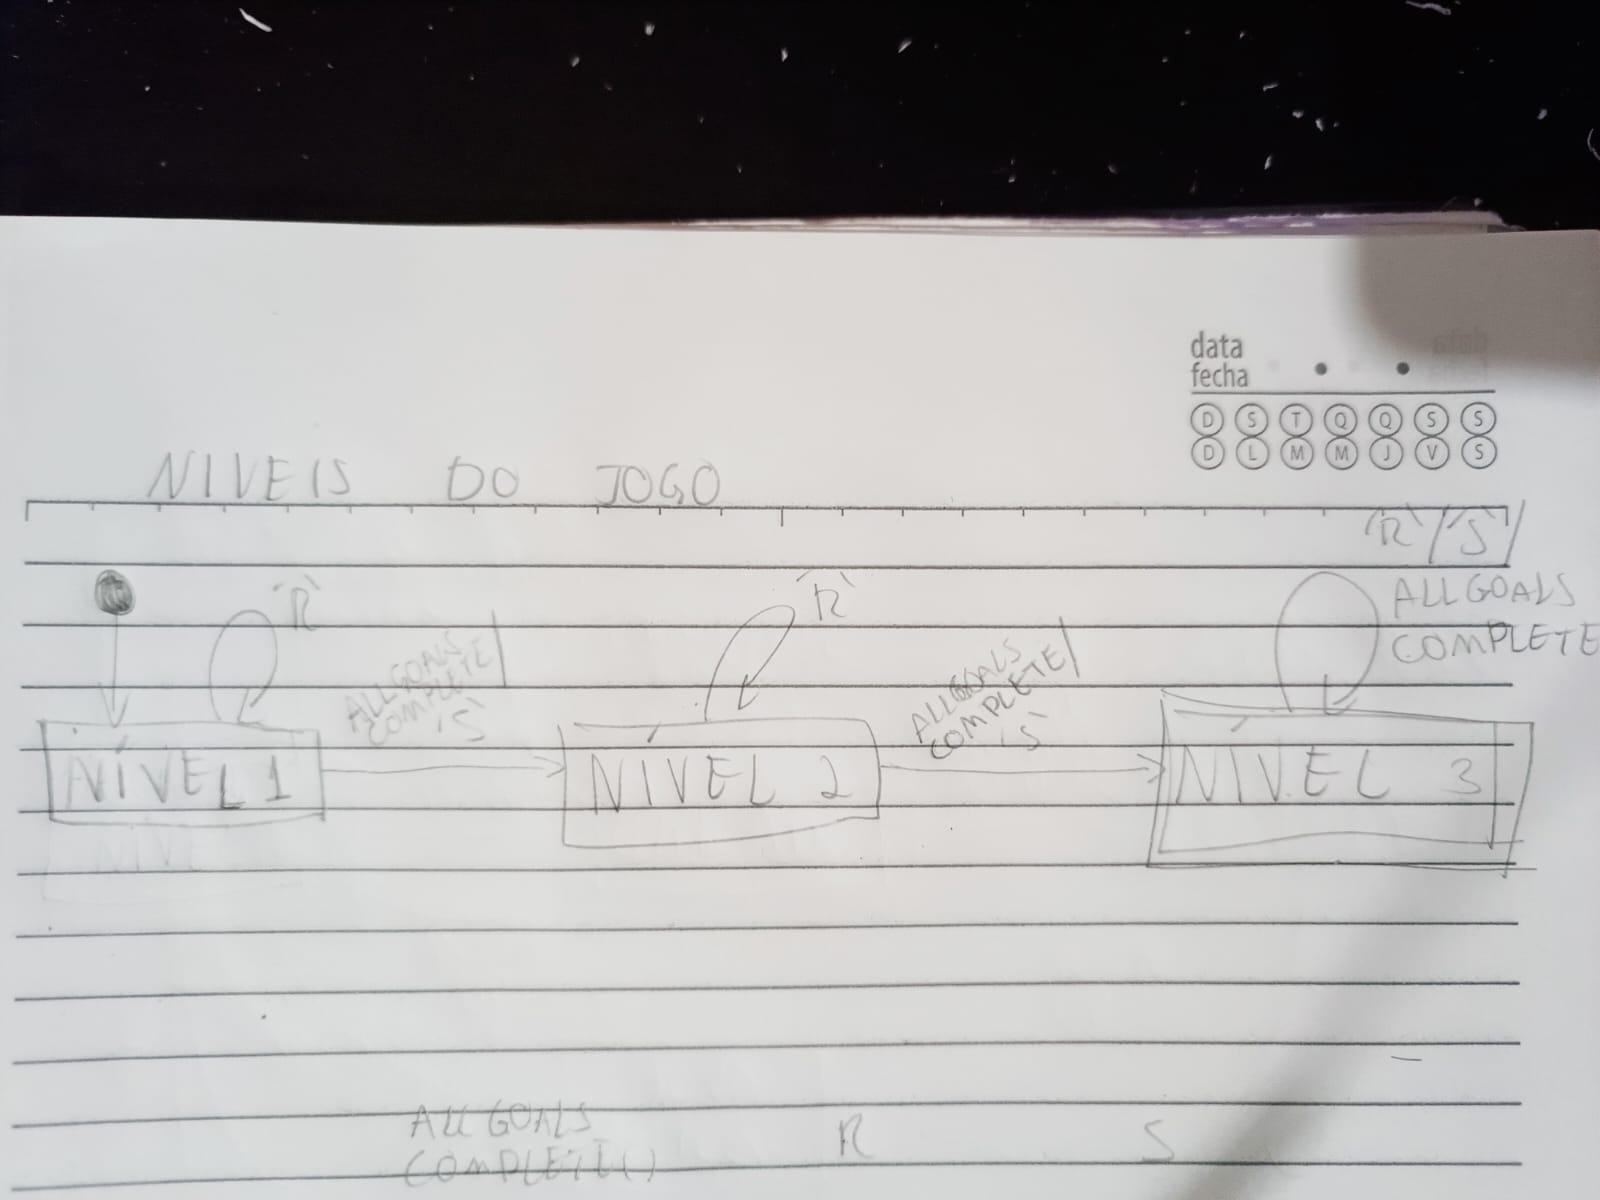 data
fecha
D S T Q Q S S
D L M M J V S
NIVEIS DO JOGO
'R'/'S'/
ALL GOALS
COMPLETE
'R'
'R'
ALL GOALS
COMPLETE/
'S'
ALL GOALS
COMPLETE/
'S'
NÍVEL 1
NÍVEL 2
NÍVEL 3
NIVE
ALL GOALS
COMPLETE()
R
S